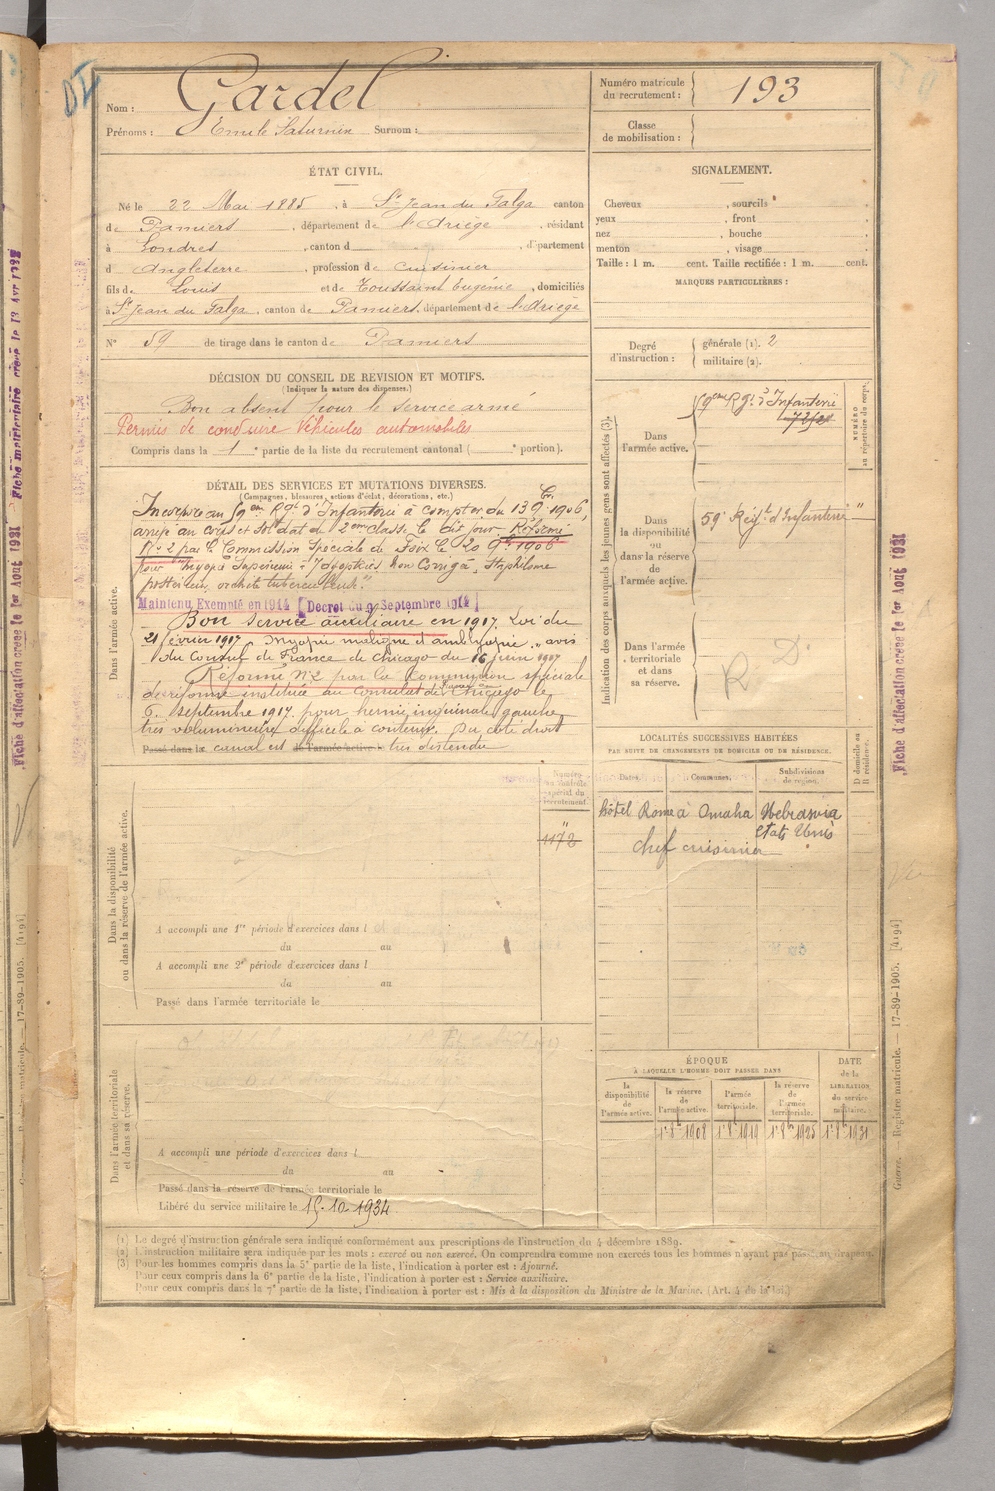 DI
Nom : Gardel
Prénoms : Emile Saturnin Surnom :
Numéro matricule
du recrutement : 193
Classe
de mobilisation :
ÉTAT CIVIL.
Né le 22 Mai 1885, à St Jean du Falga canton
de Pamiers, département de l'Ariège, résidant
à Londres, canton d , département
d Angleterre, profession de cuisinier
fils de Louis et de Toussaint Eugénie, domiciliés
à St Jean du Falga, canton de Pamiers, département de l'Ariège
N° 59 de tirage dans le canton de Pamiers
SIGNALEMENT.
Cheveux , sourcils
yeux , front
nez , bouche
menton , visage
Taille : 1 m. cent. Taille rectifiée : 1 m. cent.
MARQUES PARTICULIÈRES :
Degré
d'instruction :
générale (1). 2
militaire (2).
DÉCISION DU CONSEIL DE REVISION ET MOTIFS.
(Indiquer la nature des dispenses.)
Bon absent pour le service armé
Permis de conduire Véhicules automobiles
Compris dans la 1e partie de la liste du recrutement cantonal ( e portion).
DÉTAIL DES SERVICES ET MUTATIONS DIVERSES.
(Campagnes, blessures, actions d'éclat, décorations, etc.)
Dans l'armée active.
Incorporé au 59em Rgt d'Infanterie à compter du 13 9bre 1906,
arrivé au corps et soldat de 2eme classe le dit jour. Réformé
N° 2 par la Commission Spéciale de Foix le 20 9bre 1906
pour Myopie Supérieure à 7 dioptries non Corrigée, Staphilome
postérieur, orchite tuberculeuse".
Maintenu Exempté en 1914 [Décret du 9 Septembre 1914]
Bon service auxiliaire en 1917. Loi du
21 février 1917. Myopie maligne et amblyopie, avis
du Consul de France de Chicago du 16 juin 1917
Réformé N° 2 par la Commission spéciale
de réforme instituée au Consulat de France Chicago le
6 septembre 1917 pour hernie inguinale gauche
très volumineuse difficile à contenir. Du côté droit
Passé dans la canal est de l'armée active le très distendu
Indication des corps auxquels les jeunes gens sont affectés (3).
NUMÉRO
au répertoire du corps.
Dans
l'armée active.
59em Rgt d'Infanterie
7252
Dans
la disponibilité
ou
dans la réserve
de
l'armée active.
59e Régt d'Infanterie "
Dans l'armée
territoriale
et dans
sa réserve.
R. D.
LOCALITÉS SUCCESSIVES HABITÉES
PAR SUITE DE CHANGEMENTS DE DOMICILE OU DE RÉSIDENCE.
Dates. Communes. Subdivisions
de région.
D domicile ou
R résidence.
hôtel Rome à Omaha Nebraska
Etats Unis
chef cuisinier
Dans la disponibilité
ou dans la réserve de l'armée active.
Numéro
au contrôle
spécial du
recrutement.
"
1172
A accompli une 1re période d'exercices dans l
du au
A accompli une 2e période d'exercices dans l
du au
Passé dans l'armée territoriale le
Dans l'armée territoriale
et dans sa réserve.
A accompli une période d'exercices dans l
du au
Passé dans la réserve de l'armée territoriale le
Libéré du service militaire le 15-10-1934
ÉPOQUE
À LAQUELLE L'HOMME DOIT PASSER DANS
la
disponibilité
de
l'armée active.
la réserve
de
l'armée active.
l'armée
territoriale.
la réserve
de
l'armée
territoriale.
DATE
de la
LIBÉRATION
du service
militaire.
1-8bre 1908 1-8bre 1919 1-8bre 1925 1-8bre 1931
(1) Le degré d'instruction générale sera indiqué conformément aux prescriptions de l'instruction du 4 décembre 1889.
(2) L'instruction militaire sera indiquée par les mots : exercé ou non exercé. On comprendra comme non exercés tous les hommes n'ayant pas passé au drapeau.
(3) Pour les hommes compris dans la 5e partie de la liste, l'indication à porter est : Ajourné.
Pour ceux compris dans la 6e partie de la liste, l'indication à porter est : Service auxiliaire.
Pour ceux compris dans la 7e partie de la liste, l'indication à porter est : Mis à la disposition du Ministre de la Marine. (Art. 4 de la loi.)
Fiche d'affectation créée le 1er Août 1931
Guerre. — Registre matricule. — 17-89-1905. [4194]
Fiche d'affectation créée le 1er Août 1931 — Fiche matriculaire créée le 13 Avr 1938
Registre matricule. — 17-89-1905. [4194]